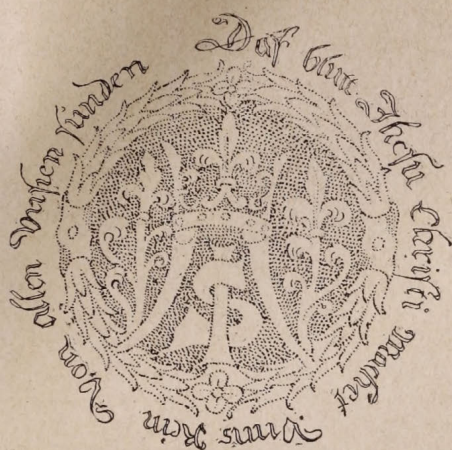 Daß blutt Jhesu Christi machet Vnns Rein Vom allen Vnnsern sunden